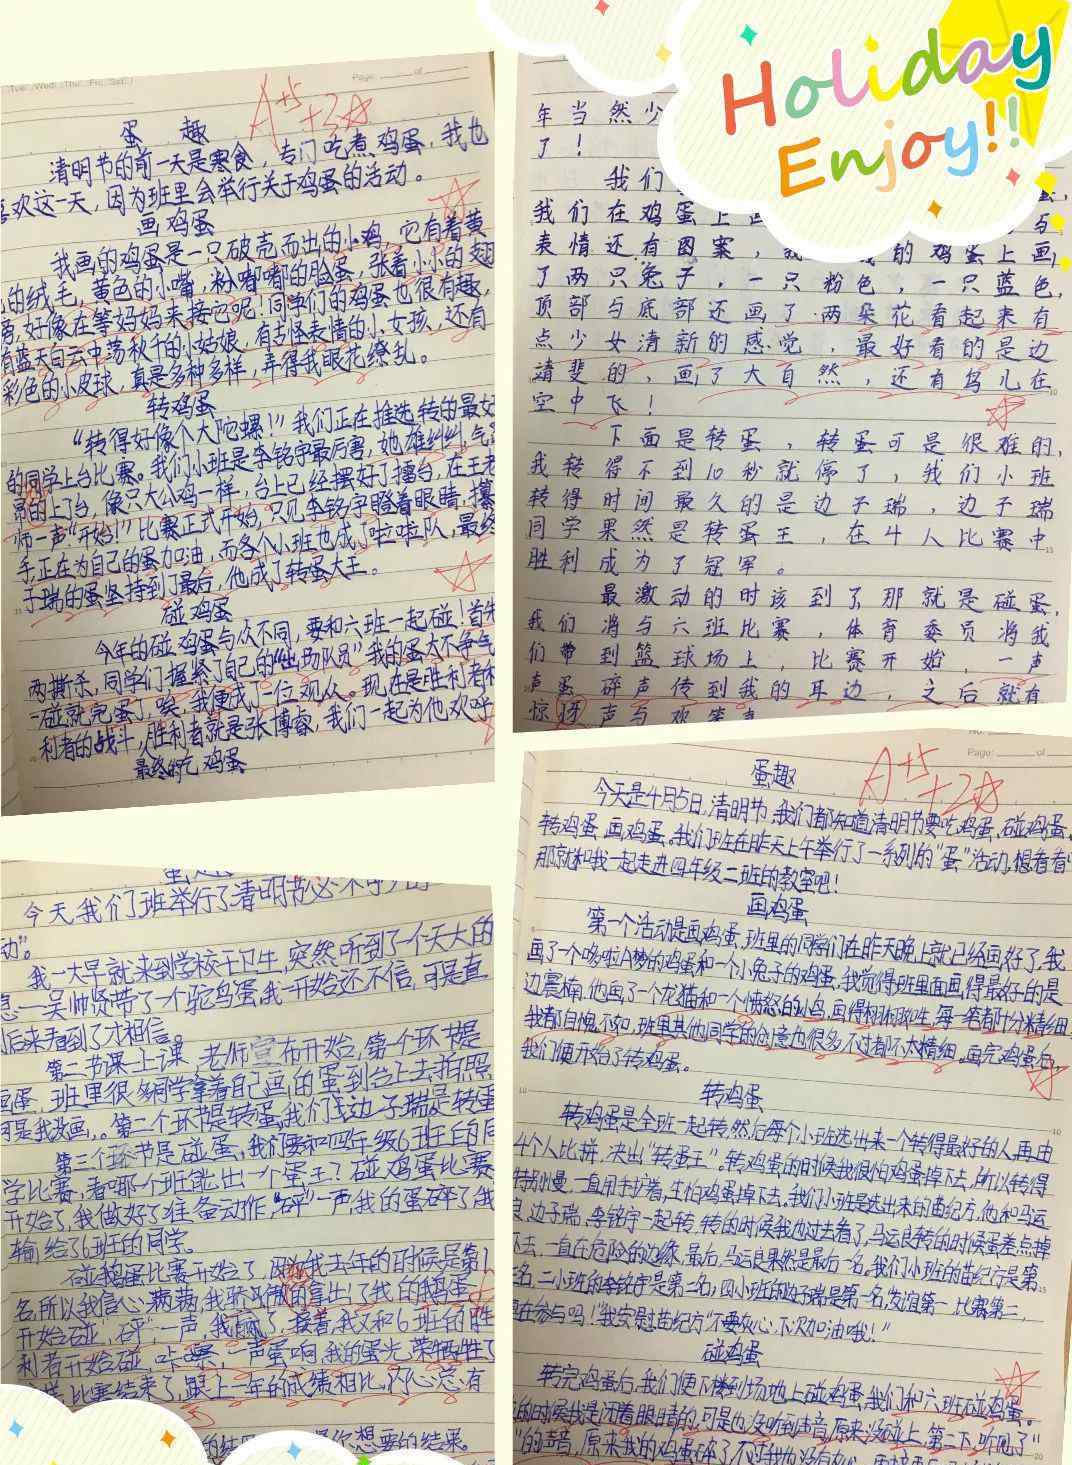 Tue. Wed. Thu. Fri. Sat.
Page: of
A+5
+2☆
蛋 趣
清明节的前一天是寒食，专门吃煮鸡蛋，我也
喜欢这一天，因为班里会举行关于鸡蛋的活动。
画鸡蛋
我画的鸡蛋是一只破壳而出的小鸡，它有着黄
的绒毛，黄色的小嘴，粉嘟嘟的脸蛋，张着小小的翅
膀，好像在等妈妈来接它呢！同学们的鸡蛋也很有趣，
有蓝天白云中荡秋千的小姑娘，有古怪表情的小女孩，还有
彩色的小皮球，真是多种多样，弄得我眼花缭乱。
转鸡蛋
“转得好像个大陀螺！”我们正在推选转的最好
的同学上台比赛。我们小班是李铭宇最厉害，她雄纠纠，气
昂的上了台，像只大公鸡一样，台上已经摆好了擂台，在王老
师一声“开始！”比赛正式开始，只见李铭宇瞪着眼睛，攥
手，正在为自己的蛋加油，而各个小班也成了啦啦队，最终
子瑞的蛋坚持到了最后，他成了转蛋大王。
碰鸡蛋
今年的碰鸡蛋与众不同，要和六班一起碰！首先
两撕杀，同学们握紧了自己的“出场队员”我的蛋太不争气
一碰就完蛋了，唉，我便成了一位观众。现在是胜利者和
利者的战斗，胜利者就是张博睿，我们一起为他欢呼
最终的吃鸡蛋
Holiday
Enjoy!!
年当然少
了！
我们
我们在鸡蛋上画 与
表情还有图案， 的鸡蛋上画
了两只兔子，一只粉色，一只蓝色，
顶部与底部还画了两朵花看起来有
点少女清新的感觉，最好看的是边
靖斐的，画了大自然，还有鸟儿在
空中飞！
下面是转蛋，转蛋可是很难的，
我转得不到10秒就停了，我们小班
转得时间最久的是边子瑞，边子瑞
同学果然是转蛋王，在4人比赛中
胜利成为了冠军。
最激动的时该到了，那就是碰蛋，
我们将与六班比赛，体育委员将我
们带到篮球场上，比赛开始，一声
声蛋碎声传到我的耳边，之后就有
惊讶声与欢笑声
今天，我们班举行了清明节必不可少的
动”。
我一大早就来到学校干卫生，突然听到了一个天大的
息——吴帅贤带了一个鸵鸟蛋，我一开始还不信，可是直
后来看到了才相信。
第二节课上课，老师宣布开始，第一个环节是
画蛋，班里很多同学拿着自己画的蛋到台上去拍照
可是我没画。第二个环节是转蛋，我们班边子瑞是转蛋
第三个环节是碰蛋，我们要和四年级6班的同
学比赛，看哪个班能出一个蛋王？碰鸡蛋比赛
开始了，我做好了准备动作，“砰”一声，我的蛋碎了，我
输给了6班的同学。
碰鹅蛋比赛开始了，因为我去年的时候是第1
名，所以我信心满满，我骄傲的拿出了我的鹅蛋
开始碰，“砰”一声，我赢了，接着，我又和6班的胜
利者开始碰，咔嚓一声蛋响，我的蛋光荣牺牲了
比赛结束了，跟上一年的成绩相比，内心总有
想要的结果。
No:
Page: of
A+5
+2☆
蛋趣
今天是4月5日，清明节，我们都知道清明节要吃鸡蛋，碰鸡蛋，
转鸡蛋，画鸡蛋。我们班在昨天上午举行了一系列的“蛋”活动，想看看吗
那就和我一起走进四年级二班的教室吧！
画鸡蛋
第一个活动是画鸡蛋，班里的同学们在昨天晚上就已经画好了，我
画了一个哆啦A梦的鸡蛋和一个小兔子的鸡蛋，我觉得班里面画得最好的是
边震楠，他画了一个龙猫和一个愤怒的小鸟，画得栩栩如生，每一笔都十分精细
我都自愧不如，班里其他同学的创意也很多，不过都不太精细。画完鸡蛋后，
我们便开始了转鸡蛋。
转鸡蛋
转鸡蛋是全班一起转，然后每个小班选出来一个转得最好的人，再由
4个人比拼，决出“转蛋王”。转鸡蛋的时候我很怕鸡蛋掉下去，所以转得
特别慢，一直用手护着，生怕鸡蛋掉下去。我们小班是选出来的苗纪方，他和马运
良，边子瑞，李铭宇一起转，转的时候我也过去看了，马运良转的时候蛋差点掉
下去，一直在危险的边缘，最后，马运良果然是最后一名。我们小班的苗纪方是第
名，二小班的李铭宇是第二名，四小班的边子瑞是第一名，友谊第一，比赛第二，
重在参与吗！“我安慰苗纪方“不要灰心，下次加油哦！”
碰鸡蛋
转完鸡蛋后，我们便下楼到场地上碰鸡蛋，我们和六班碰鸡蛋。
的时候我是闭着眼睛的，可是也没听到声音，原来没碰上，第二下，听见了“
”的声音，原来我的鸡蛋碎了，不过我也没有灰心